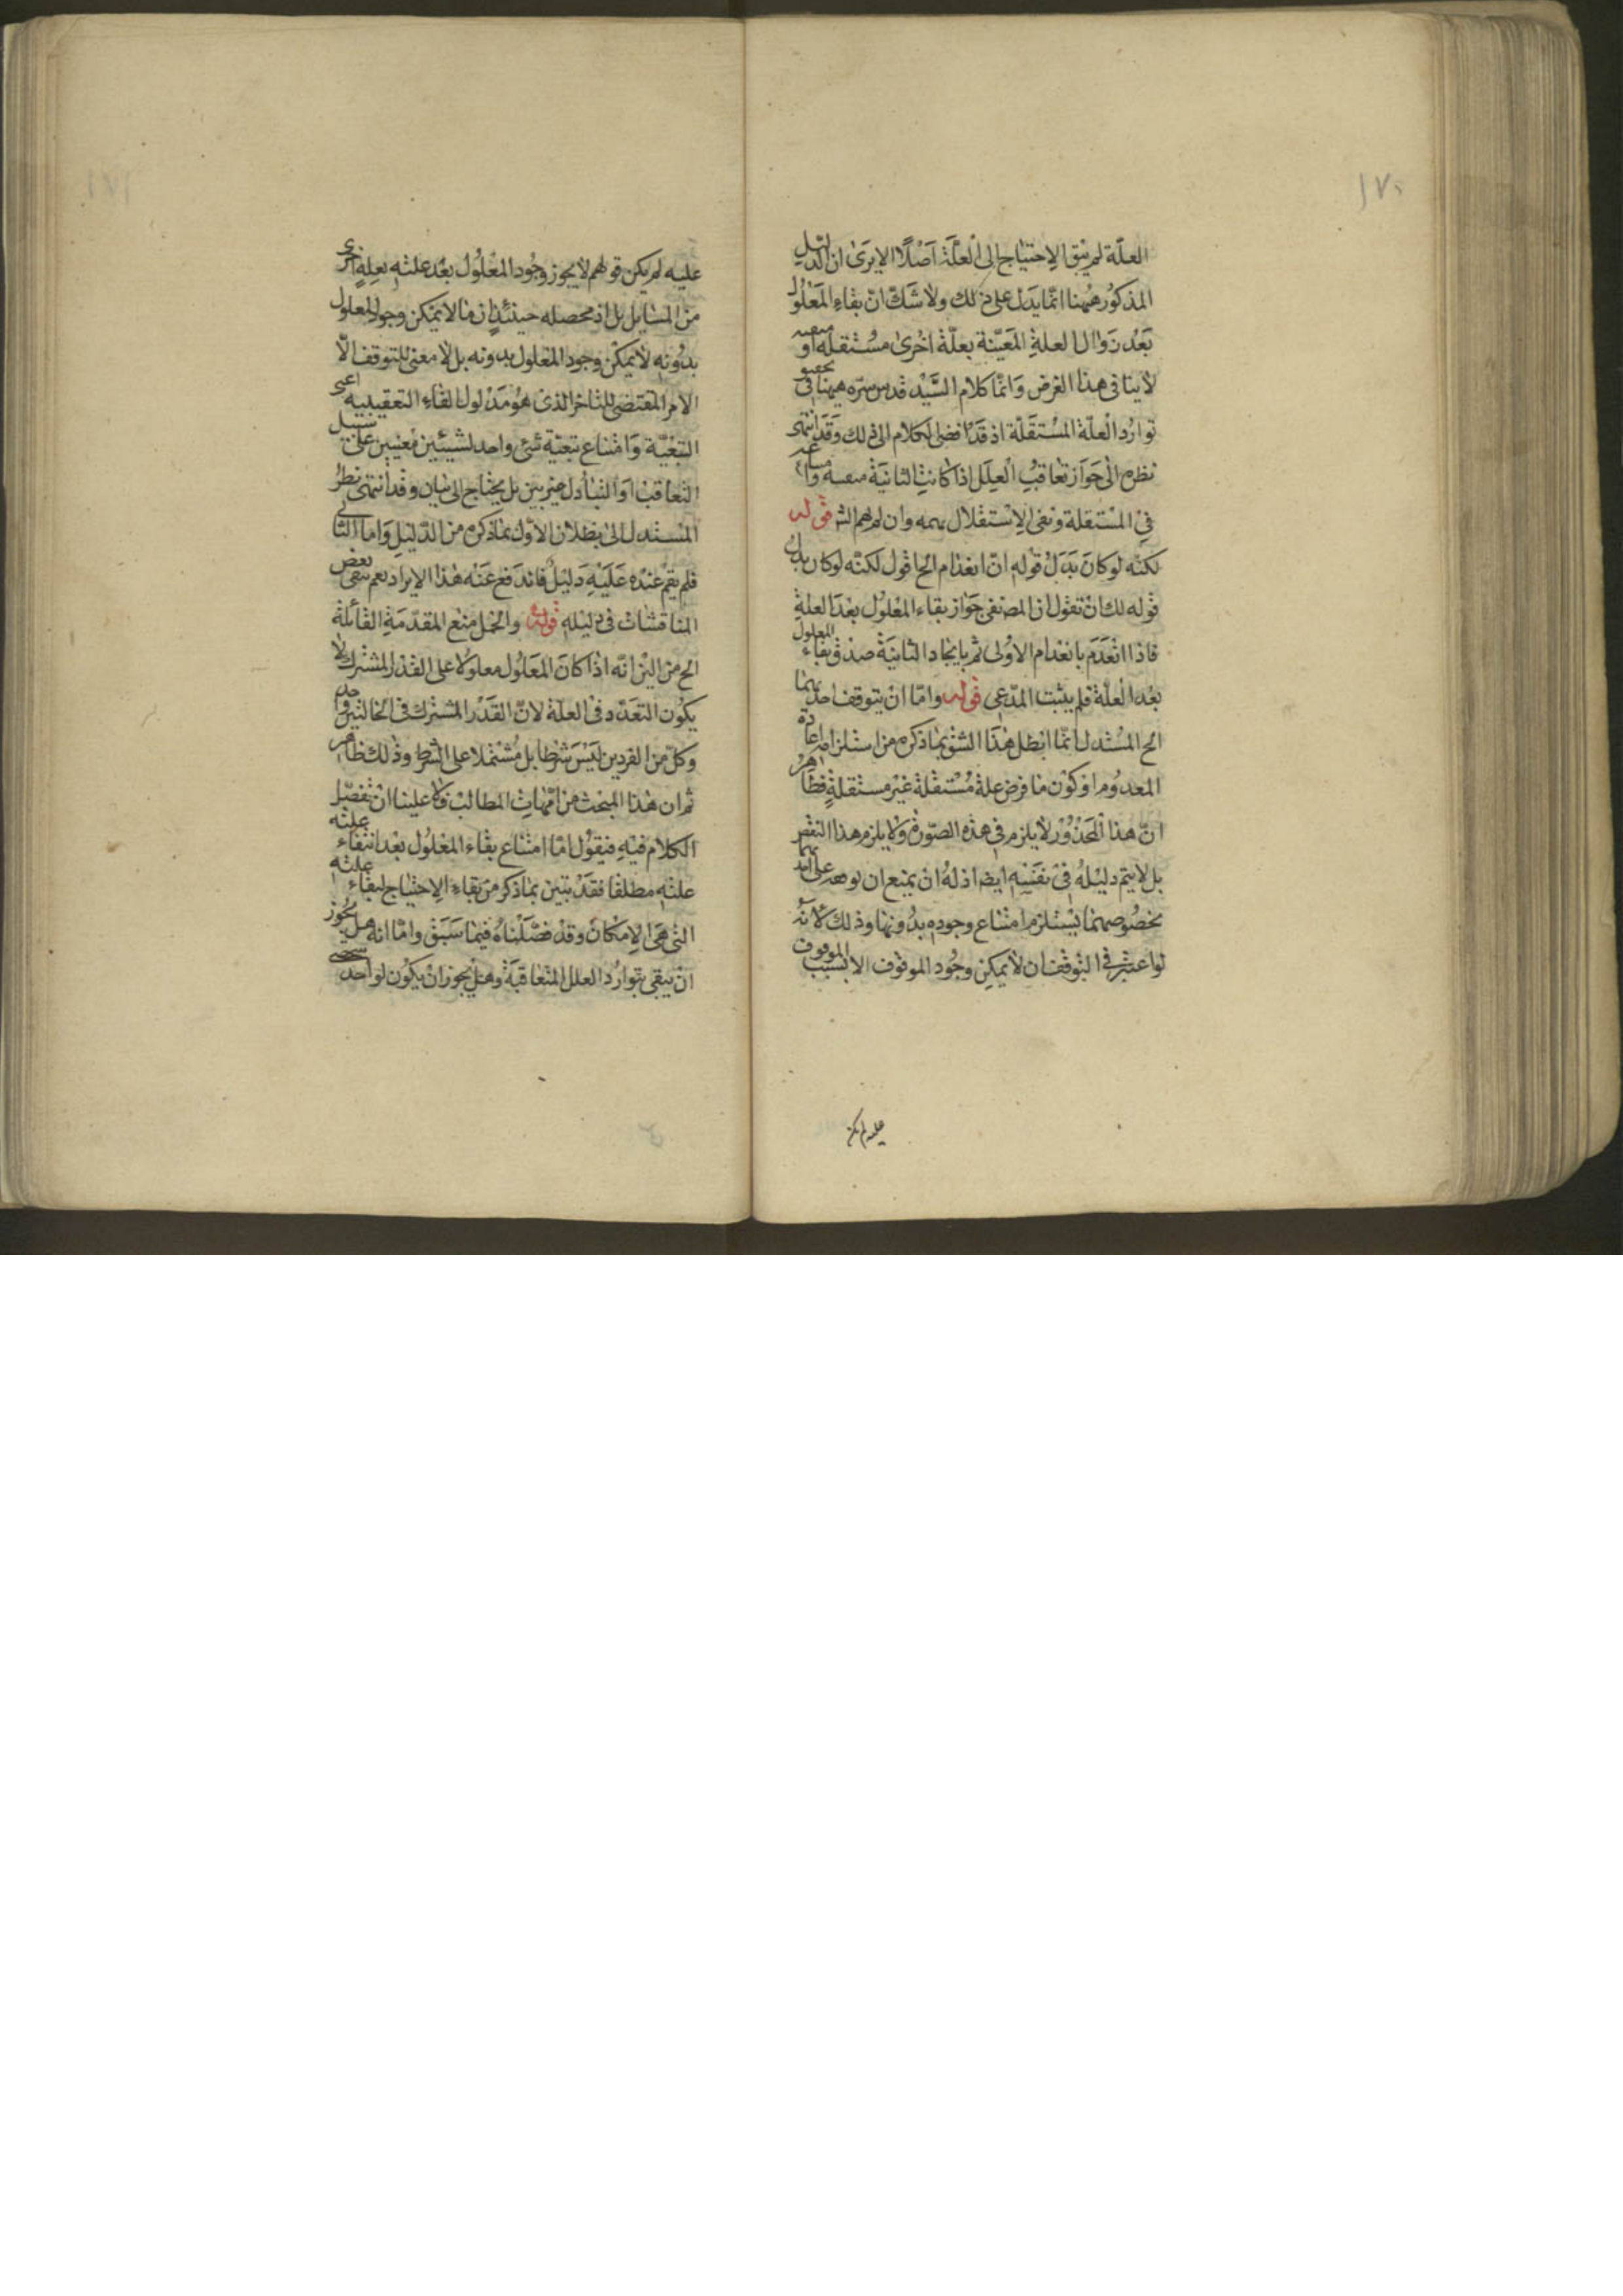 ١٧٠
العلّة لم يبق الاحتياج الى العلّة اصلًا الا يرى ان الدليل
المذكور ههنا انّما يدل على ذلك ولا شكّ انّ بقاء المعلول
بعد زوال العلة المعيّنة بعلّة اخرى مستقلة او
لا ينافى هذا الغرض وانّما كلام السّيّد قدس سرّه ههنا فى
توارد العلّة المستقلّة اذ قد افضى الكلام الى ذلك وقد انتهى
نظره الى جواز تعاقب العلل اذا كانت الثانية
فى المستقلة ونفى الاستقلال وان قوله
لكنّه لوكان بدل قوله انّ انعدام الخ اقول لكنّه لوكان بدل
قوله لك ان تقول ان المص نفى جواز بقاء المعلول بعد العلة
فاذا انعدم بانعدام الاولى ثم بايجاد الثانية صدق بقاء المعلول
بعد العلّة فلم يثبت المدّعى قوله وامّا ان يتوقف احدهما
الخ المستدل انّما ابطل هذا الشق بما ذكره من استلزامه اعادة
المعدوم او كون ما فرض علة مستقلة غير مستقلة فظاهر
انّ هذا المحذور لا يلزم فى هذه الصّورة ولا يلزم هذا النقض
بل لا يتم دليله فى نفسه ايضا اذ له ان يمنع ان توقفه على احدهما
بخصوصهما يستلزم امتناع وجوده بدونها وذلك لانّه
لو اعتبر فى التوقف ان لا يمكن وجود الموقوف الا بسبب الموقوف
عليه لم يكن
١٧١
عليه لم يكن قولهم لا يجوز وجود المعلول بعد علته بعلة اخرى
من المسايل بل اذ محصله حينئذ ان ما لا يمكن وجود المعلول
بدونه لا يمكن وجود المعلول بدونه بل لا معنى للتوقف الّا
الامر المقتضى للتاخر الذى هو مدلول الفاء التعقيبية اعنى
التبعيّة وامتناع تبعيّة شئ واحد لشيئين معينين على سبيل
التعاقب او التبادل غير بين بل يحتاج الى بيان وقد انتهى نظر
المستدل الى بطلان الاول بما ذكره من الدّليل واما الثانى
فلم يقم عنده عليه دليل فاندفع عنه هذا الايراد نعم بقى بعض
المناقشات فى دليله قوله والحمل منع المقدّمة القائلة
الخ من البيّن انّه اذا كان المعلول معلولا على القدر المشترك لا
يكون التعدّد فى العلة لانّ القدر المشترك فى الحالتين واحد
وكلّ من الفردين ليس شرطا بل مشتملا على الشرط وذلك ظاهر
ثم ان هذا المبحث من امّهات المطالب فلا علينا ان نفصّل
الكلام فيه فنقول امّا امتناع بقاء المعلول بعد انتفاء علته
علته مطلقا فقد تبيّن بما ذكر من بقاء الاحتياج لبقاء علته
التى هى الامكان وقد فصّلناه فيما سبق وامّا انه هل يجوز
ان يبقى بتوارد العلل المتعاقبة وهل يجوز ان يكون لواحد شخصى